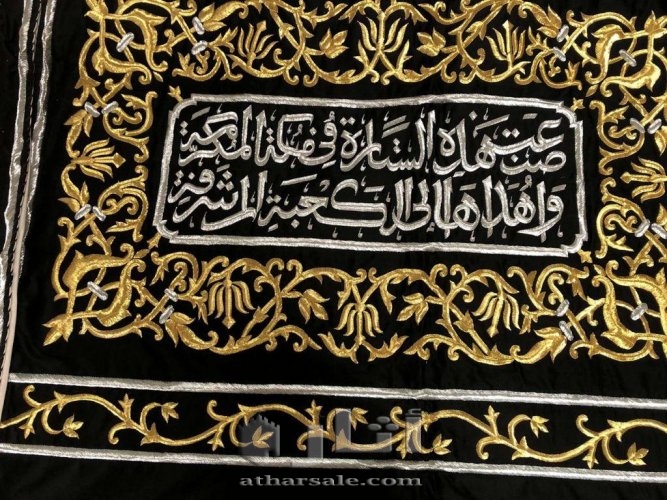 صنعت هذه الستارة في مكة المكرمة
واهداها الى الكعبة المشرفة
أثار
atharsale.com